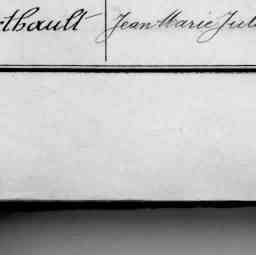 rthault Jean Marie Jul